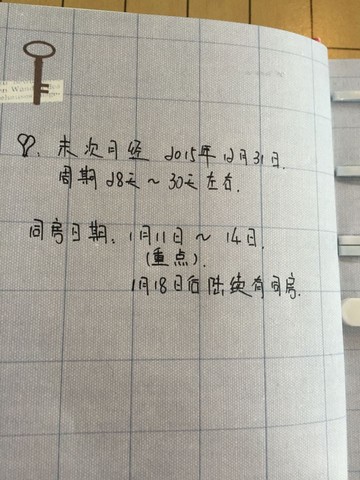 末次月经 2015年12月31日.
周期28天~30天左右.
同房日期: 1月11日~14日.
(重点).
1月18日后陆续有同房.